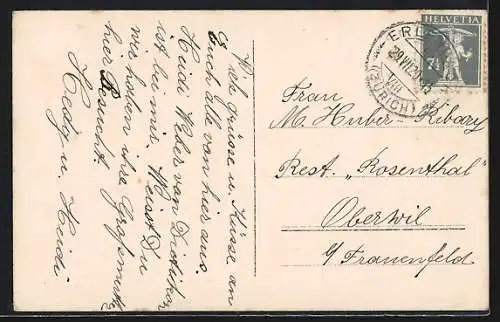 Viele Grüsse u. Küsse an
Euch alle von hier aus.
Heidi Weber von Dietikon
ist bei mir. Weisst Du
wir haben ihre Grossmutter
hier Besucht.
Hedy u. Heidi
HELVETIA
7½
ERL
29.VII.20.
VIII
(ZÜRICH)
Frau
M. Huber-Ribary
Rest. „Rosenthal"
Oberwil
b/ Frauenfeld